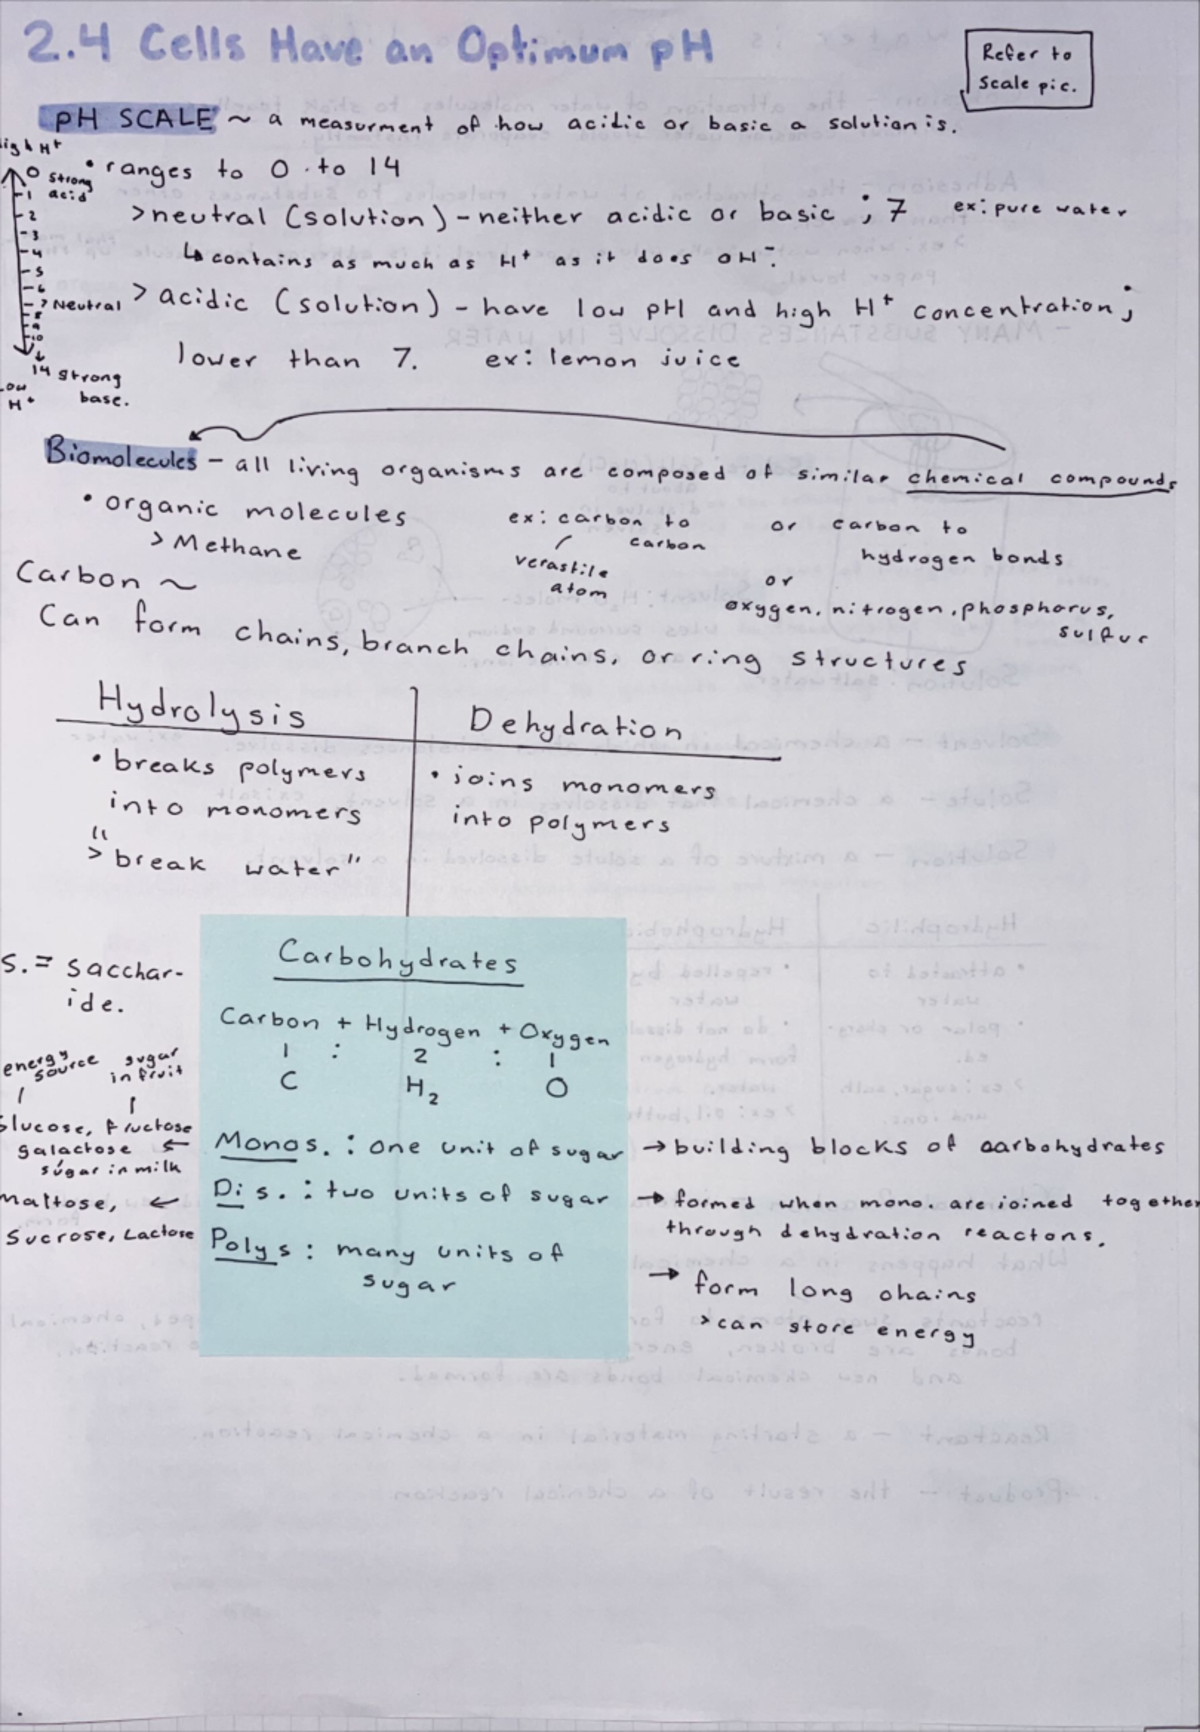 2.4 Cells Have an Optimum pH
Refer to
Scale pic.
pH SCALE ~ a measurment of how acidic or basic a solution is.
• ranges to 0 to 14
>neutral (solution) - neither acidic or basic ; 7 ex: pure water
↳ contains as much as H⁺ as it does OH⁻.
> acidic (solution) - have low pH and high H⁺ concentration;
lower than 7. ex: lemon juice
H⁺
0 strong
acid
1
2
3
4
5
6
7 Neutral
8
9
10
14 strong
base.
H⁺
Biomolecules - all living organisms are composed of similar chemical compounds
• organic molecules
> Methane
ex: carbon to
carbon
verastile
atom
or carbon to
hydrogen bonds
or
oxygen, nitrogen, phosphorus,
sulfur
Carbon ~
Can form chains, branch chains, or ring structures
Hydrolysis
• breaks polymers
into monomers
> "break water"
Dehydration
• joins monomers
into polymers
S. = sacchar-
ide.
Carbohydrates
Carbon + Hydrogen + Oxygen
1 : 2 : 1
C H₂ O
energy
source
sugar
in fruit
Glucose, fructose
galactose ←
sugar in milk
Monos. : one unit of sugar → building blocks of carbohydrates
maltose, ←
Sucrose, Lactose
Di s. : two units of sugar → formed when mono. are joined together
through dehydration reactons.
Polys : many units of
sugar
→ form long chains
> can store energy